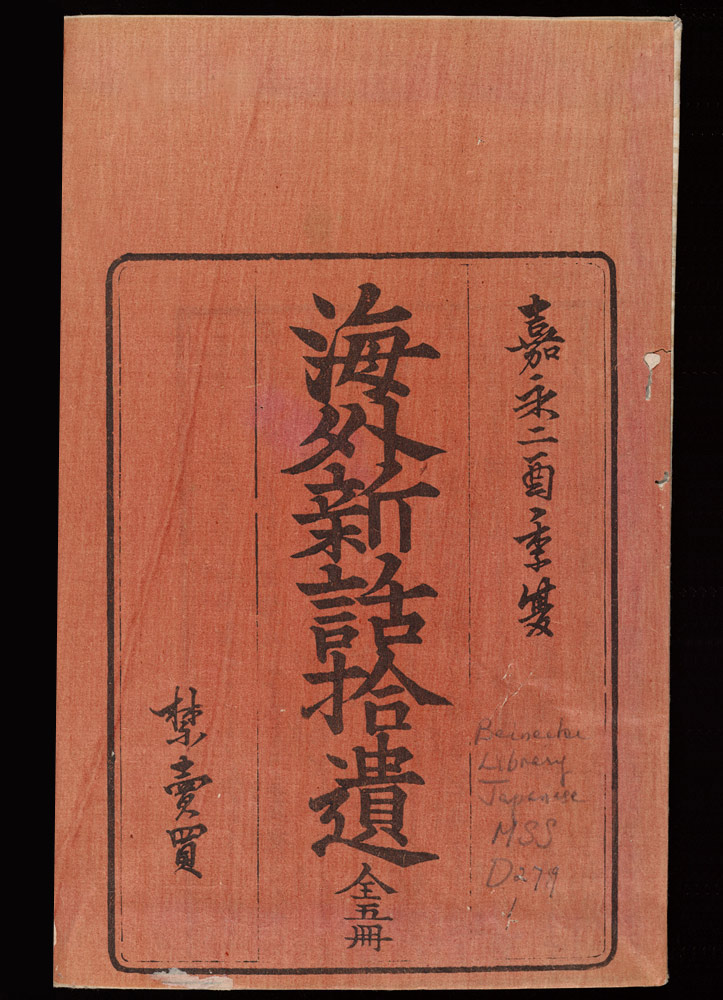 嘉永二酉季夏
海外新話拾遺
全五冊
禁賣買
Beinecke
Library
Japanese
MSS
D279
1